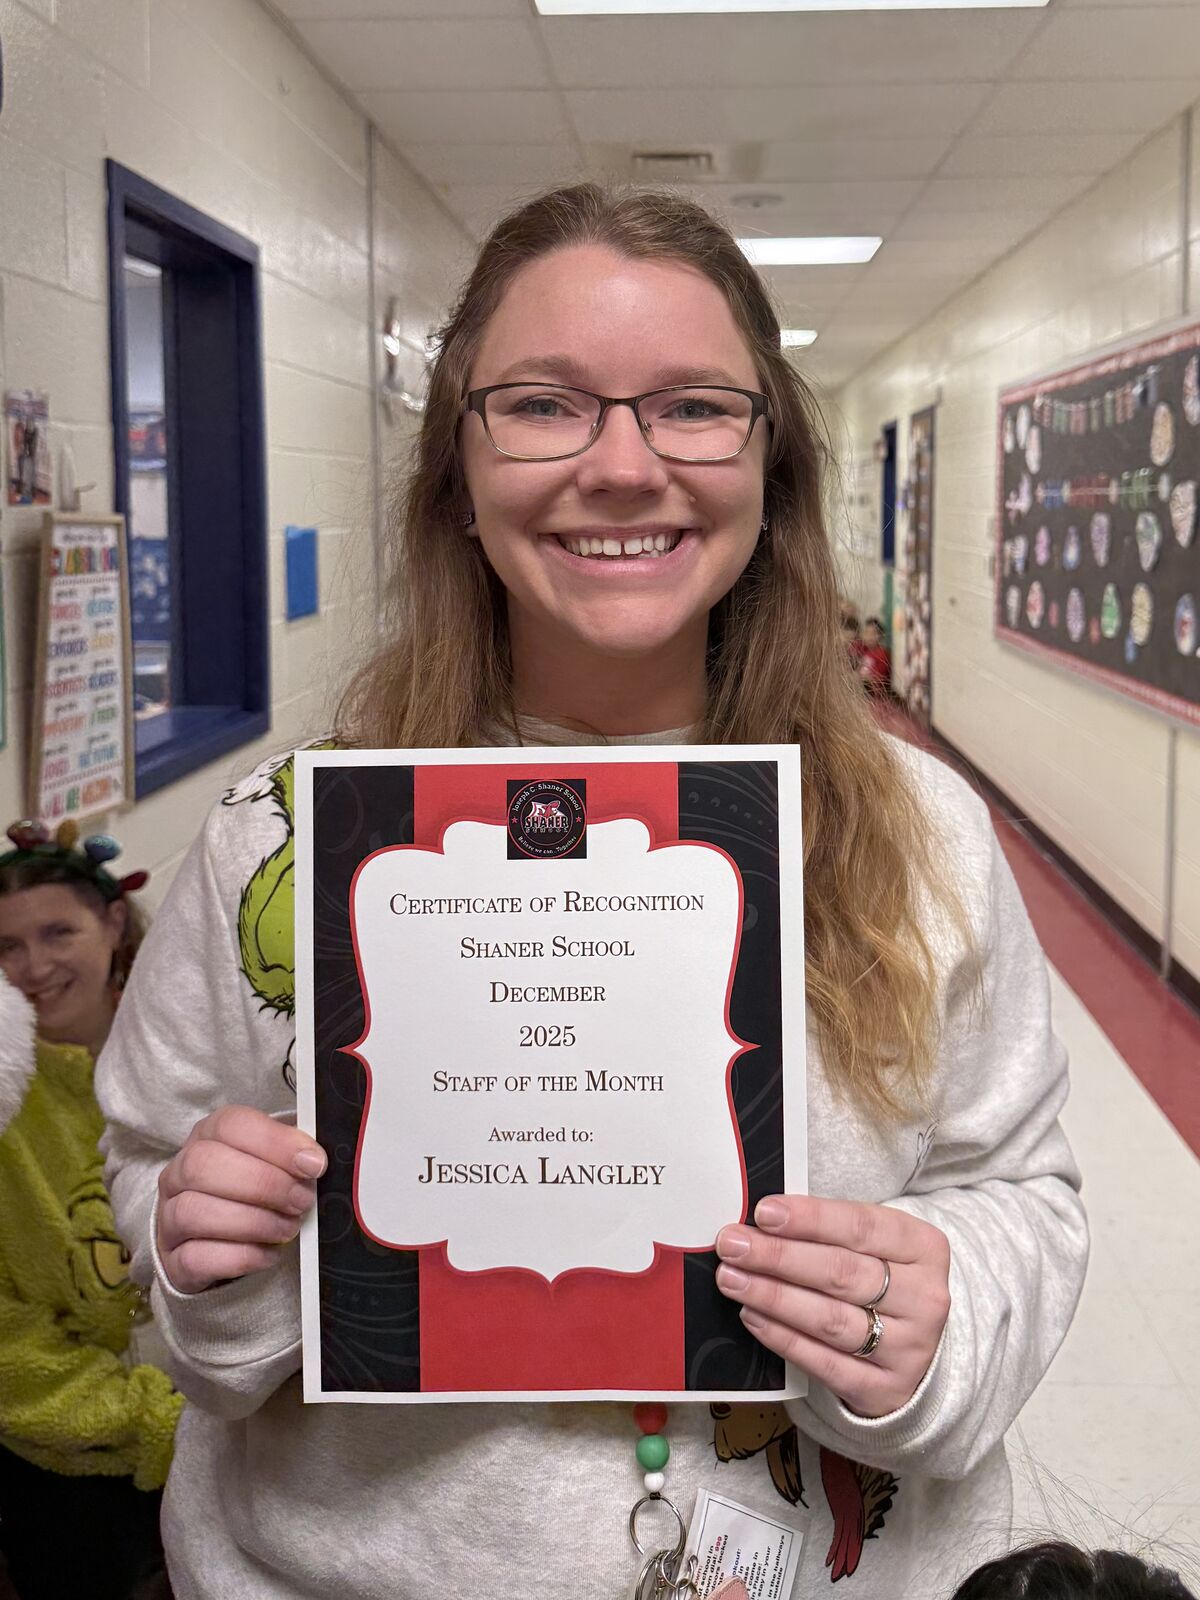 Joseph C. Shaner School
SHANER
SCHOOL
Believe we can...Together
Certificate of Recognition
Shaner School
December
2025
Staff of the Month
Awarded to:
Jessica Langley